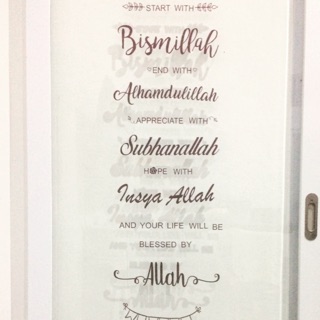 START WITH
Bismillah
END WITH
Alhamdulillah
APPRECIATE WITH
Subhanallah
HOPE WITH
Insya Allah
AND YOUR LIFE WILL BE
BLESSED BY
Allah